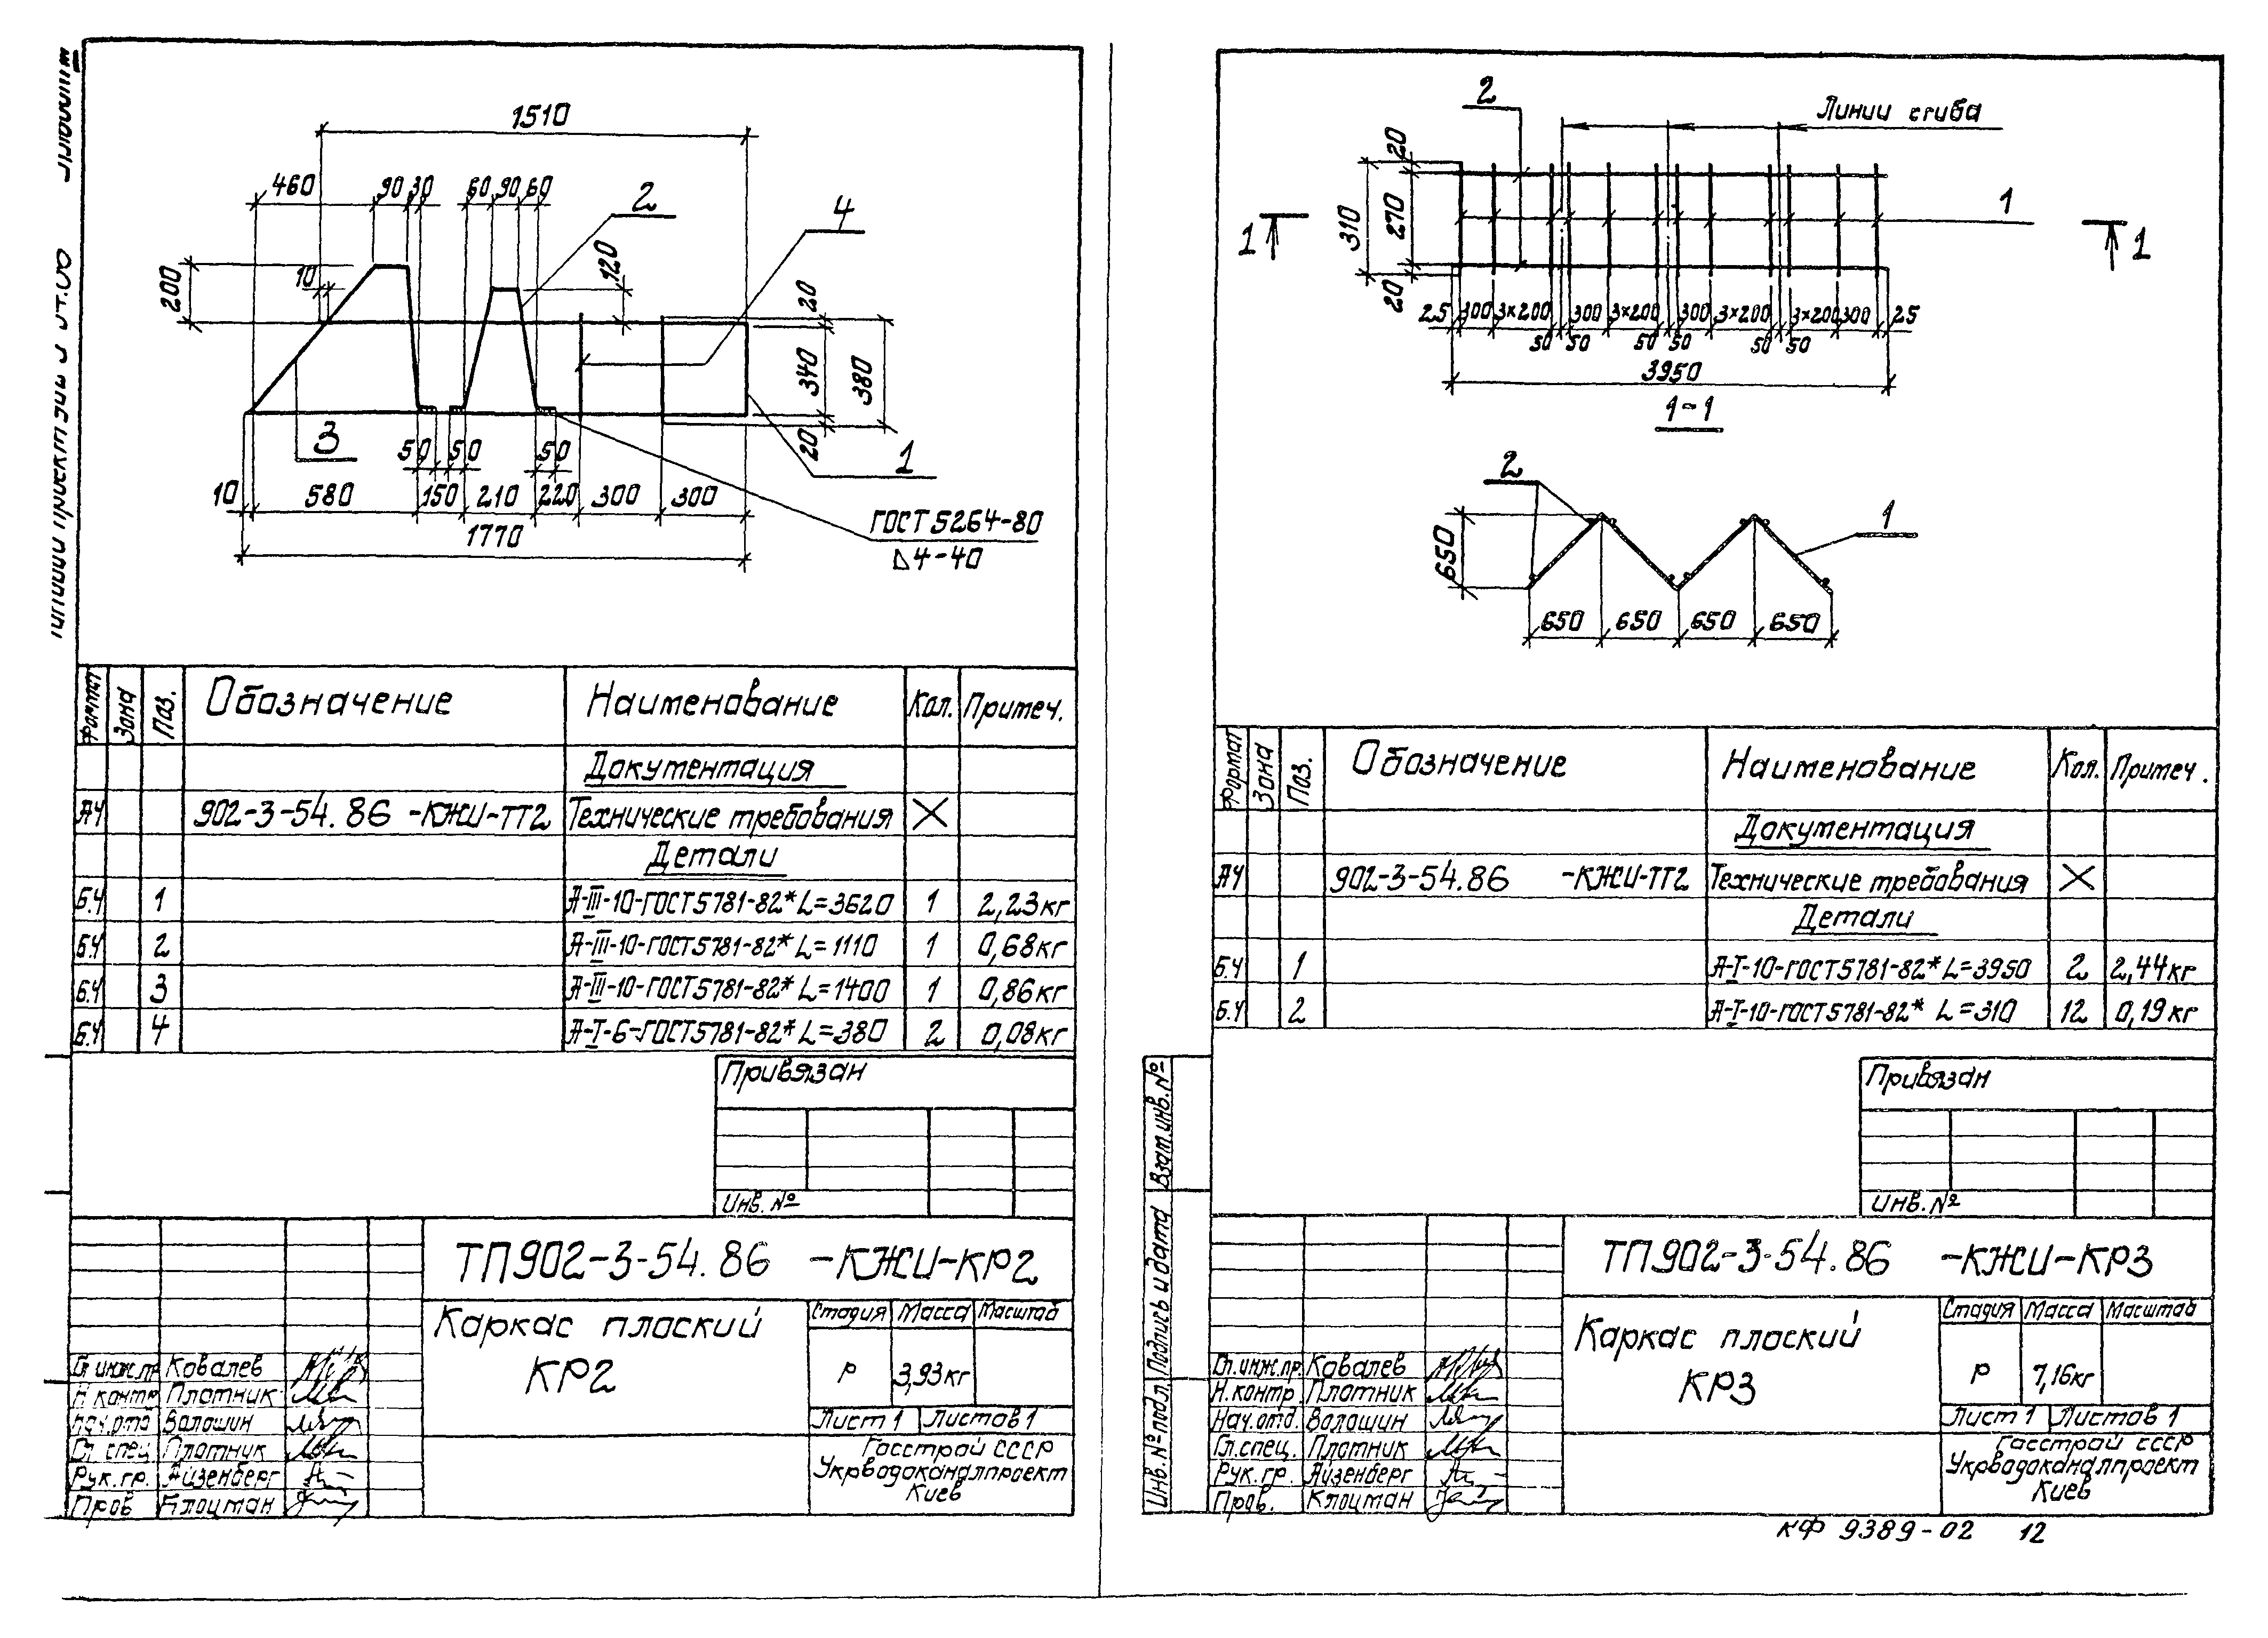 1510
460
90
30
60
90
60
2
4
200
10
120
20
340
380
20
3
50
50
50
1
10
580
150
210
220
300
300
1770
ГОСТ 5264-80
4-40
Формат Зона Поз. Обозначение Наименование Кол. Примеч.
Документация
А4 902-3-54.86 -КЖИ-ТТ2 Технические требования
Детали
Б.Ч 1 А-III-10-ГОСТ5781-82* L=3620 1 2,23кг
Б.Ч 2 А-III-10-ГОСТ5781-82* L=1110 1 0,68кг
Б.Ч 3 А-III-10-ГОСТ5781-82* L=1400 1 0,86кг
Б.Ч 4 А-I-6-ГОСТ5781-82* L=380 2 0,08кг
Привязан
Инв. №
ТП902-3-54.86 -КЖИ-КР2
Каркас плоский
КР2
Стадия Масса Масштаб
Р 3,93кг
Лист 1 Листов 1
Госстрой СССР
Укрводоканалпроект
Киев
Гл.инж.пр. Ковалев
Н.контр. Плотник
Нач.отд Волошин
Гл. спец. Плотник
Рук.гр. Айзенберг
Пров Клоцман
2
Линии сгиба
20
270
310
20
1
1
1
25 300 3×200 300 3×200 300 3×200 3×200 300 25
50 50 50 50 50 50
3950
1-1
2
1
650
650 650 650 650
Формат Зона Поз. Обозначение Наименование Кол. Примеч.
Документация
А4 902-3-54.86 -КЖИ-ТТ2 Технические требования
Детали
Б.Ч 1 А-I-10-ГОСТ5781-82* L=3950 2 2,44кг
Б.Ч 2 А-I-10-ГОСТ5781-82* L=310 12 0,19кг
Привязан
Инв. №
Взам.инв.№
Подпись и дата
Инв.№подл.
ТП902-3-54.86 -КЖИ-КР3
Каркас плоский
КР3
Стадия Масса Масштаб
Р 7,16кг
Лист 1 Листов 1
Госстрой СССР
Укрводоканалпроект
Киев
Гл.инж.пр. Ковалев
Н.контр. Плотник
Нач.отд. Волошин
Гл.спец. Плотник
Рук.гр. Айзенберг
Пров. Клоцман
КФ 9389-02 12